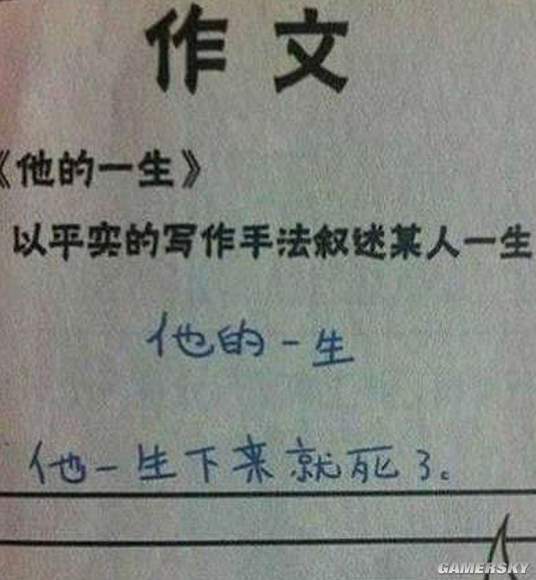 作文
《他的一生》
以平实的写作手法叙述某人一生
他的一生
他一生下来就死了。
GAMERSKY